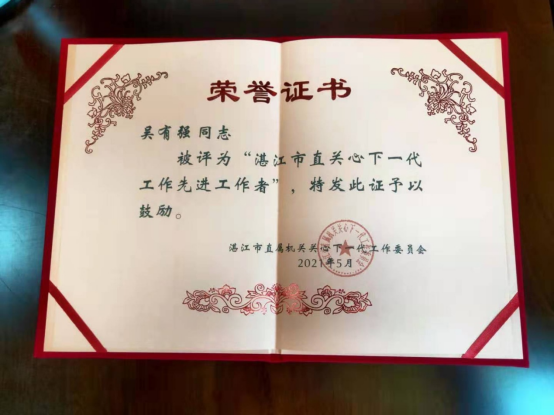 荣誉证书
吴有强同志
被评为“湛江市直关心下一代
工作先进工作者”，特发此证予以
鼓励。
湛江市直属机关关心下一代工作委员会
2021年5月